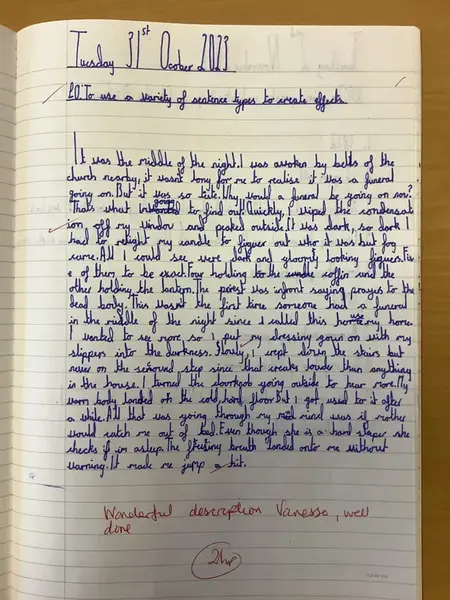 Tuesday 31st Ocober 2023
LO: To use a variety of sentence types to create effects
It was the middle of the night. I was awoken by bells of the
church nearby, it wasnt long for me to realise it was a funeral
going on. But it was so late. Why would a funeral be going on now?
Thats what I going to find out. Quickly, I wiped the condensat
ion off my window and peaked outside. It was dark, so dark I
had to relight my candle to figuer out who it was but fog
came. All I could see were dark and gloomy looking figuers. Fiv
e of them to be exact. Four holding the coffin and the
other holding the lantern. The periest was infront saying prayers to the
dead body. This wasnt the first time someone had a funeral
in the middle of the night since I called this house my home.
I wanted to see more so I put my dressing gown on with my
slippers into the darkness. Slowly, I crept down the stairs but
never on the second step since that creaks louder than anything
in the house. I turned the doorknob going outside to hear more. My
warm body landed on the cold, hard floor. But I got used to it after
a while. All that was going through my mind was if mother
would catch me out of bed. Even though she is a hard slaper she
checks if im asleep. The breath landed onto me without
warning. It made me jump a bit.
Wonderful description Vanessa, well
done
2hp